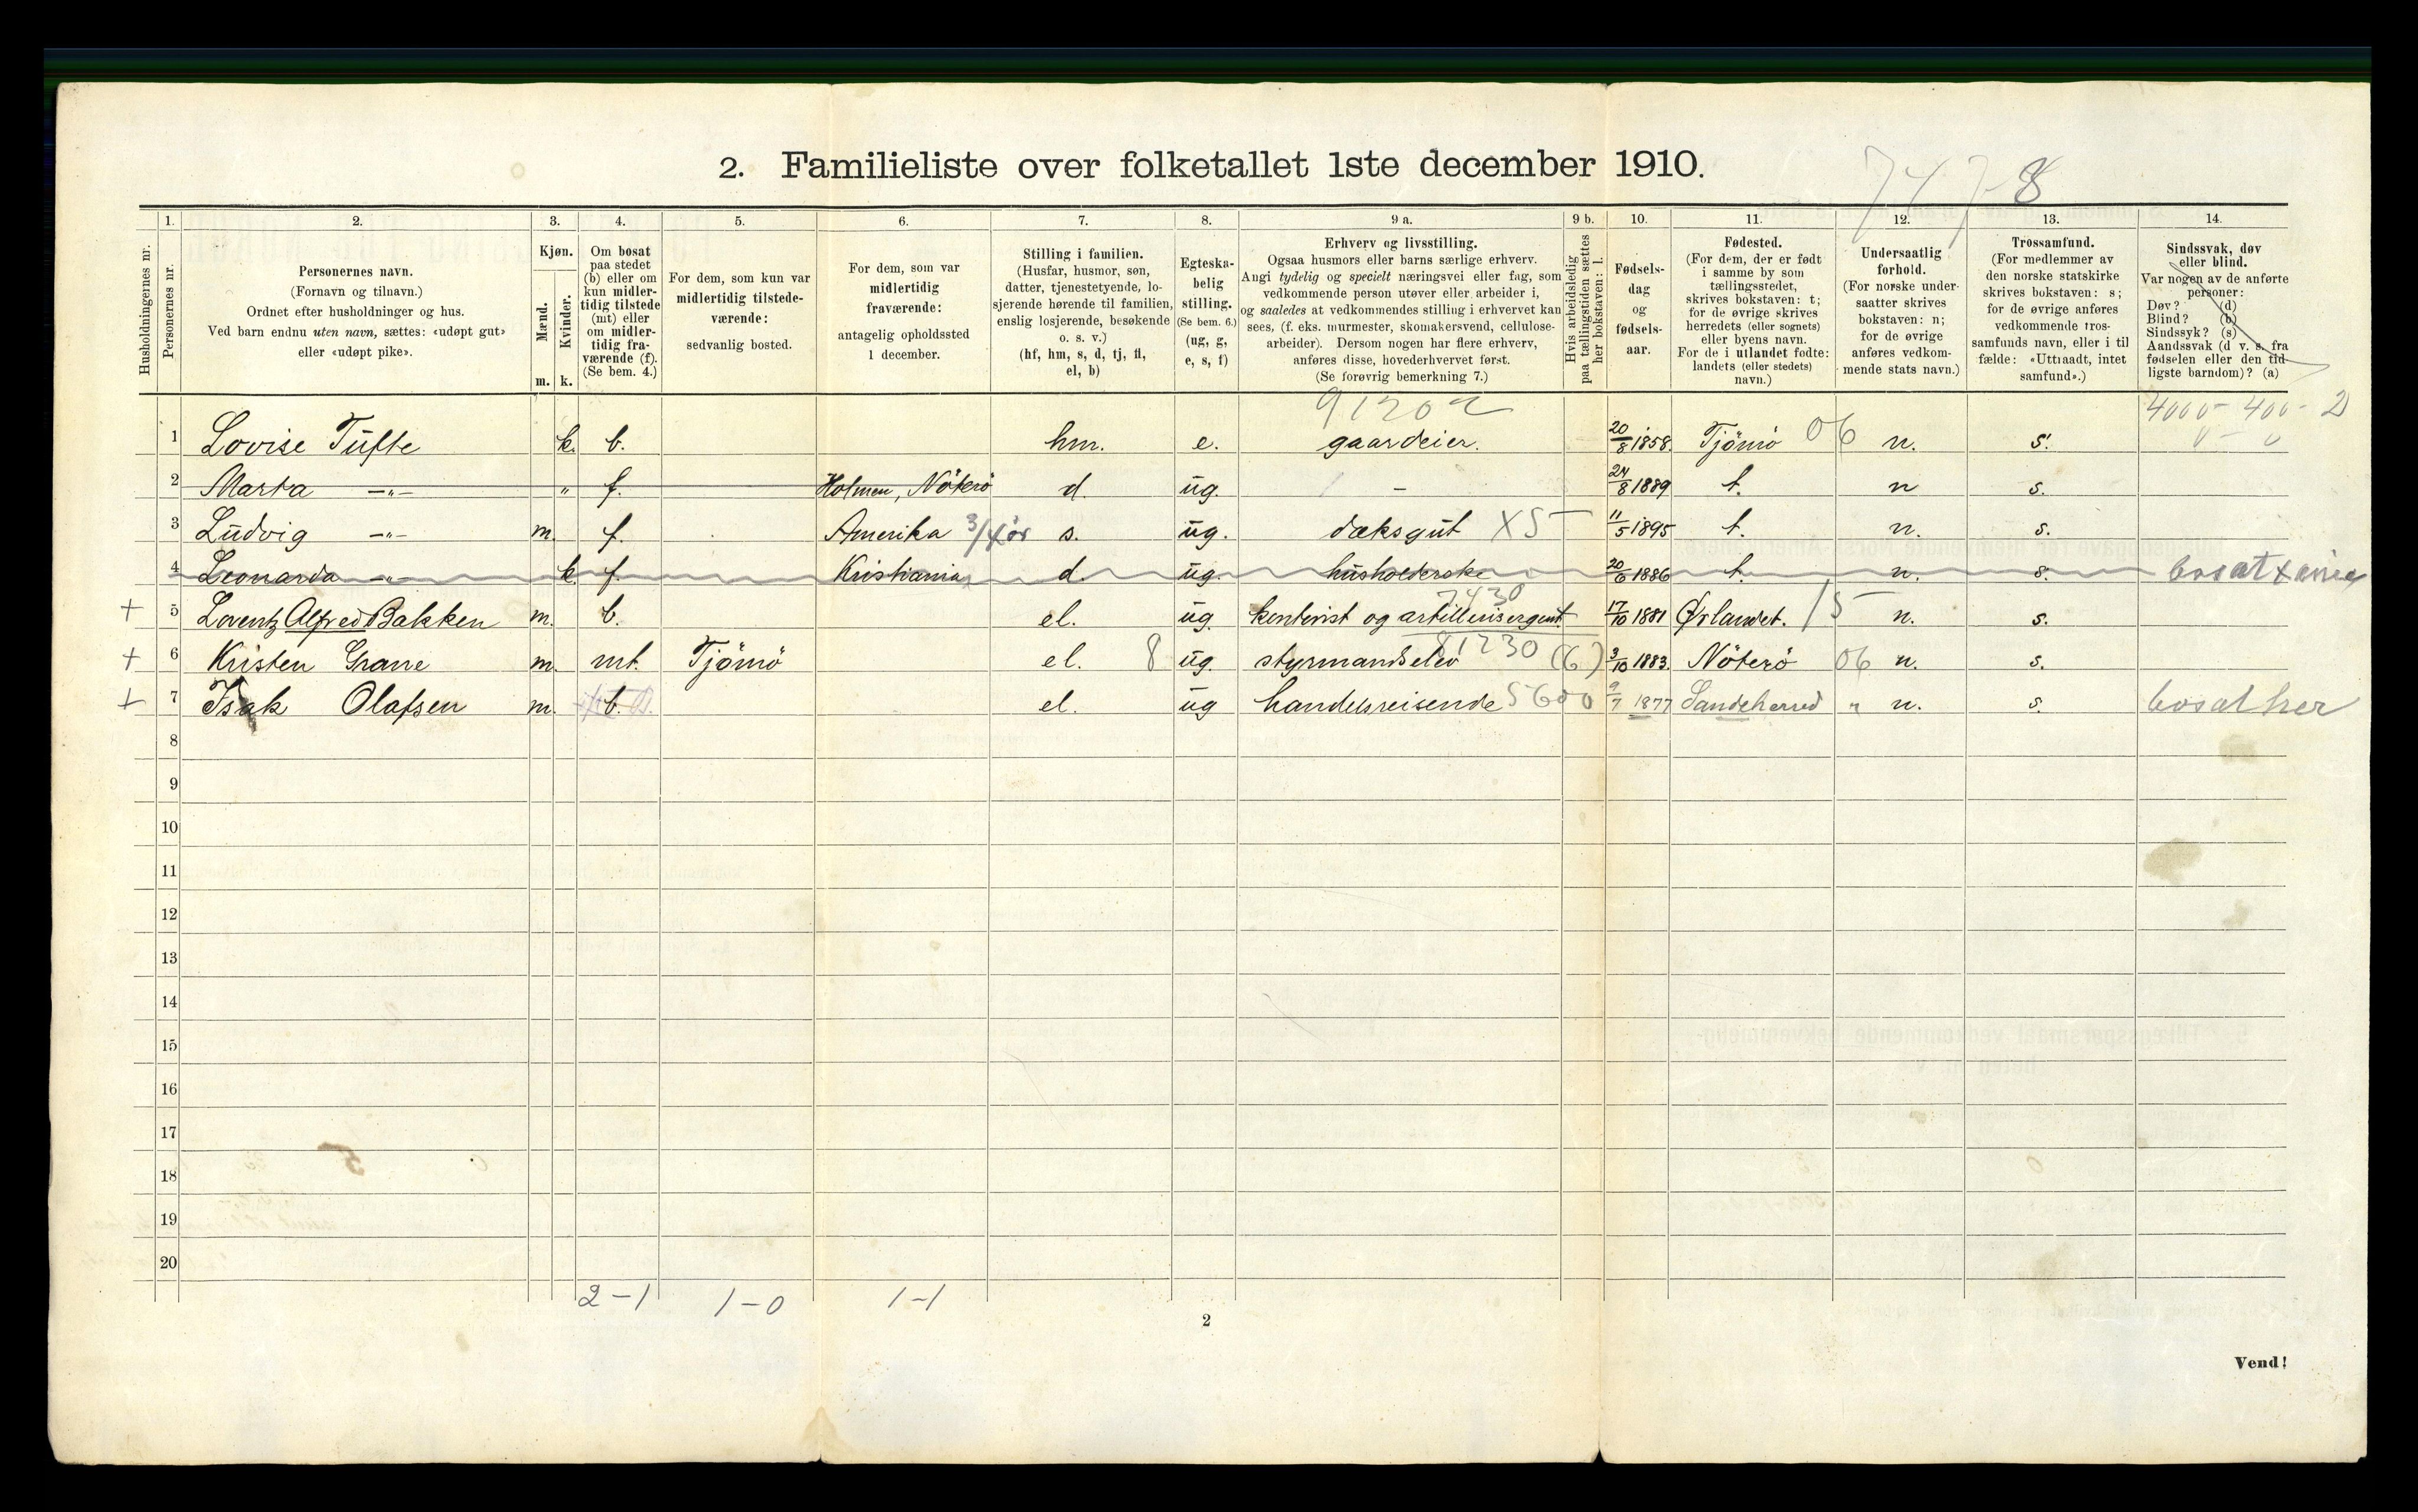 2. Familieliste over folketallet 1ste december 1910.
747-8
Husholdningernes nr.
1. Personernes nr.
2. Personernes navn. (Fornavn og tilnavn.) Ordnet efter husholdninger og hus. Ved barn endnu uten navn, sættes: «udøpt gut» eller «udøpt pike».
3. Kjøn. Mænd. m. Kvinder. k.
4. Om bosat paa stedet (b) eller om kun midlertidig tilstede (mt) eller om midlertidig fraværende (f). (Se bem. 4.)
5. For dem, som kun var midlertidig tilstedeværende: sedvanlig bosted.
6. For dem, som var midlertidig fraværende: antagelig opholdssted 1 december.
7. Stilling i familien. (Husfar, husmor, søn, datter, tjenestetyende, losjerende hørende til familien, enslig losjerende, besøkende o. s. v.) (hf, hm, s, d, tj, fl, el, b)
8. Egteskabelig stilling. (Se bem. 6.) (ug, g, e, s, f)
9 a. Erhverv og livsstilling. Ogsaa husmors eller barns særlige erhverv. Angi tydelig og specielt næringsvei eller fag, som vedkommende person utøver eller arbeider i, og saaledes at vedkommendes stilling i erhvervet kan sees, (f. eks. murmester, skomakersvend, cellulosearbeider). Dersom nogen har flere erhverv, anføres disse, hovederhvervet først. (Se forøvrig bemerkning 7.)
9 b. Hvis arbeidsledig paa tællingstiden sættes her bokstaven: l.
10. Fødselsdag og fødselsaar.
11. Fødested. (For dem, der er født i samme by som tællingsstedet, skrives bokstaven: t; for de øvrige skrives herredets (eller sognets) eller byens navn. For de i utlandet fødte: landets (eller stedets) navn.)
12. Undersaatlig forhold. (For norske undersaatter skrives bokstaven: n; for de øvrige anføres vedkommende stats navn.)
13. Trossamfund. (For medlemmer av den norske statskirke skrives bokstaven: s; for de øvrige anføres vedkommende trossamfunds navn, eller i tilfælde: «Uttraadt, intet samfund».)
14. Sindssvak, døv eller blind. Var nogen av de anførte personer: Døv? (d) Blind? (b) Sindssyk? (s) Aandssvak (d v. s. fra fødselen eller den tidligste barndom)? (a)
91202 4000- 400- 2
1 Lovise Tufte k. b. hm. e. gaardeier. 20/8 1858. Tjömö 06 n. s. 0 - 0
2 Marta -"- " f. Holmen, Nöterö d. ug. - 24/8 1889 t. n s.
3 Ludvig -"- m. f. Amerika 3/4 år s. ug. dæksgut X5- 11/5 1895 t. n. s.
4 Leonarda -"- k. f. Kristiania d. ug. husholderske 20/6 1886 t. n. s. bosat xania
+ 5 Lorentz Alfred Bakken m. b. el. ug. kontorist og artillerisergent. 7430 17/10 1881 Ørlandet. 15- n. s.
+ 6 Kristen Grane m. mt. Tjömö el. 8 ug. styrmandselev 81230 (6) 3/10 1883. Nöterö 06 n. s.
+ 7 Isak Olafsen m. b. el. ug handelsreisende 5600 9/7 1877 Sandeherred " n. s. bosat her
8
9
10
11
12
13
14
15
16
17
18
19
20
2-1 1-0 1-1
2
Vend!